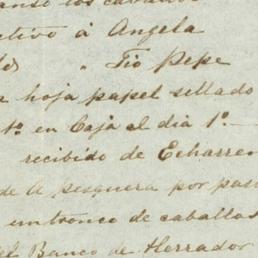 los caballos
ctivo á Angela
" Tio Pepe
a hoja papel sellado
to. en Caja el dia 1º.
recibido de Echarren
de A pesquera por pas
un tronco de caballos
el Banco de Herrador